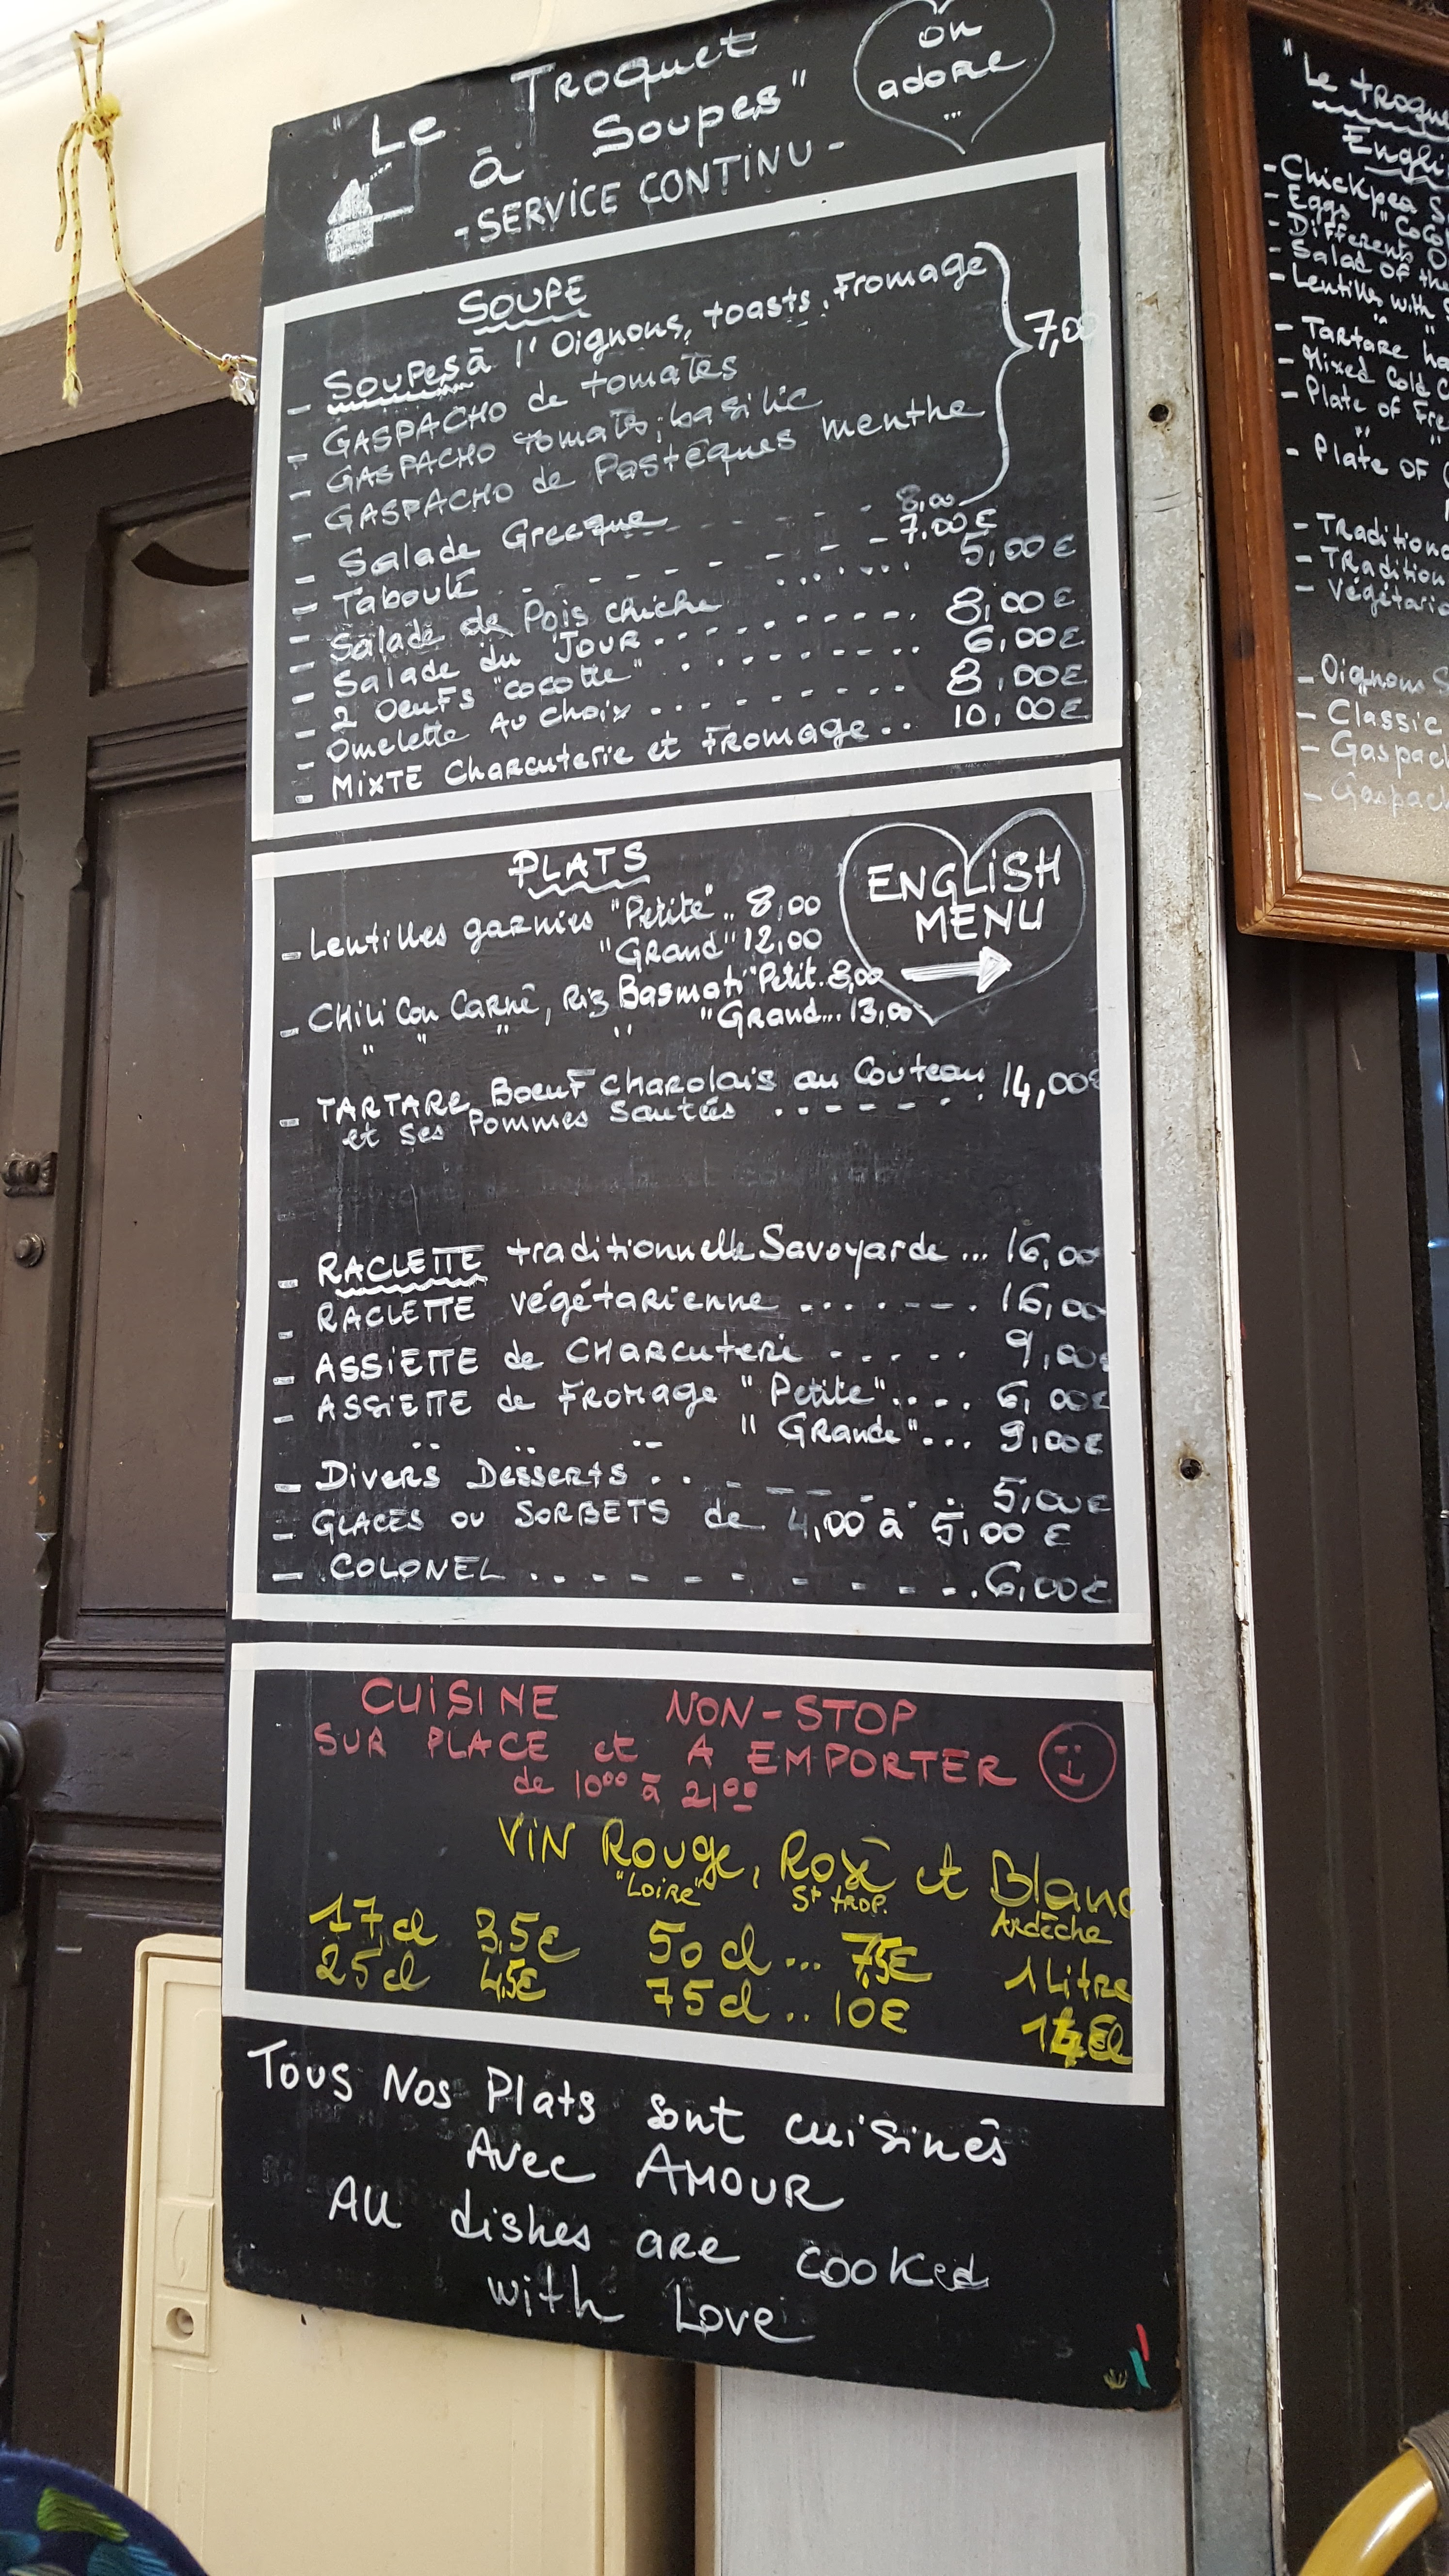 "Le Troquet
à Soupes"
on
adore
...
-SERVICE CONTINU-
SOUPE
- Soupes à l'Oignons, toasts, Fromage
7,00
- GASPACHO de tomates
- GASPACHO tomate, basilic
- GASPACHO de Pastèques menthe
- Salade Grecque - - - - - - - 8,00
- Taboulé - - - - - - - - 7.00€
- Salade de Pois chiche ....... 5,00€
- Salade du JOUR .......... 8,00€
- 2 Oeufs "cocotte" .......... 6,00€
- Omelette Au Choix ......... 8,00€
- MIXTE Charcuterie et Fromage .. 10,00€
PLATS
ENGLISH
MENU
- Lentilles garnies "Petite" .. 8,00
"Grand" 12,00
- CHili Con Carnê, Riz Basmati "Petit. 8,00
" " " " "Grand... 13,00
- TARTARE Boeuf Charolais au Couteau 14,00€
et Ses Pommes Sautées . - - - - - .
- RACLETTE traditionnelle Savoyarde ... 16,00
- RACLETTE végétarienne ....--- 16,00
- ASSIETTE de CHARCUTERI - - . . . 9,00€
- ASSIETTE de FROMAGE "Petite".... 6,00€
" " " "Grande"... 9,00€
- Divers Desserts .. - - - - . . 5,00€
- GLACES ou SORBETS de 4,00 à 5,00€
- COLONEL . . - - - - - - - .. 6,00€
CUISINE NON-STOP
SUR PLACE et A EMPORTER
de 10°° à 21°°
VIN Rouge, Rosé et Blanc
"Loire" St TROP. Ardèche
17cl 3,5€ 50cl ... 7,5€ 1 Litre
25cl 4,5€ 75cl .. 10€
Tous Nos Plats sont cuisinés
Avec AMOUR
All dishes are cooked
with Love
"Le troque
Engli
- Chickpea S
- Eggs "Coco
- Differents O
- Salad of the
- Lentills with
" "
- Tartare ha
- Mixed Cold C
- Plate of Fre
" "
- Plate OF
- Traditiona
- Tradition
- Végétari
- Oignons S
- Classic
- Gaspac
- Gaspac